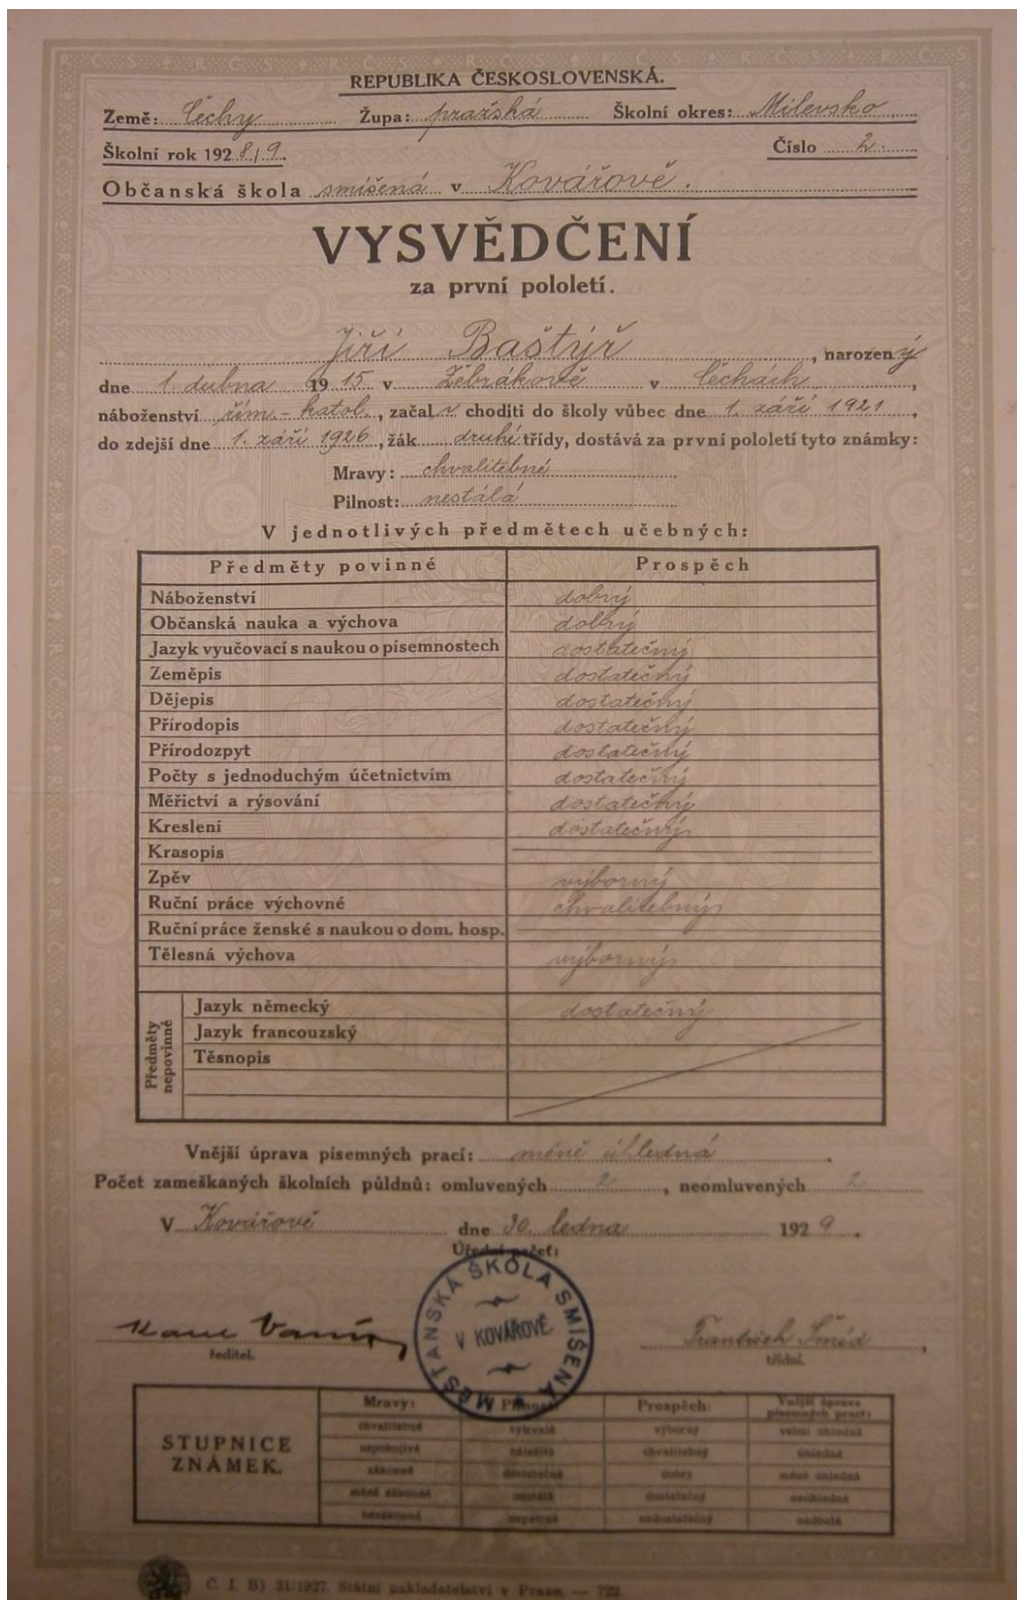 REPUBLIKA ČESKOSLOVENSKÁ.
Země: Čechy Župa: pražská Školní okres: Milevsko
Školní rok 1928/9. Číslo 2.
Občanská škola smíšená v Kovářově.
VYSVĚDČENÍ
za první pololetí.
Jiří Baštýř, narozený
dne 1. dubna 1915 v Žebrákově v Čechách,
náboženství řím.-katol., začal v choditi do školy vůbec dne 1. září 1921,
do zdejší dne 1. září 1926, žák druhé třídy, dostává za první pololetí tyto známky:
Mravy: chvalitebné
Pilnost: nestálá
V jednotlivých předmětech učebných:
Předměty povinné Prospěch
Náboženství dobrý
Občanská nauka a výchova dobrý
Jazyk vyučovací s naukou o písemnostech dostatečný
Zeměpis dostatečný
Dějepis dostatečný
Přírodopis dostatečný
Přírodozpyt dostatečný
Počty s jednoduchým účetnictvím dostatečný
Měřictví a rýsování dostatečný
Kreslení dostatečný
Krasopis
Zpěv výborný
Ruční práce výchovné chvalitebný
Ruční práce ženské s naukou o dom. hosp.
Tělesná výchova výborný
Předměty nepovinné
Jazyk německý dostatečný
Jazyk francouzský
Těsnopis
Vnější úprava písemných prací: méně úhledná.
Počet zameškaných školních půldnů: omluvených 2, neomluvených 2
V Kovářově dne 30. ledna 1929.
Úřední pečeť:
MĚŠŤANSKÁ ŠKOLA SMÍŠENÁ
V KOVÁŘOVĚ
František Šmíd
ředitel. třídní.
STUPNICE ZNÁMEK.
Mravy: Pilnost: Prospěch: Vnější úprava písemných prací:
chvalitebné vytrvalá výborný velmi úhledná
uspokojivé náležitá chvalitebný úhledná
zákonné dostatečná dobrý méně úhledná
méně zákonné nestálá dostatečný neúhledná
nezákonné nepatrná nedostatečný nedbalá
Č. I. B) 31/1927. Státní nakladatelství v Praze. — 722